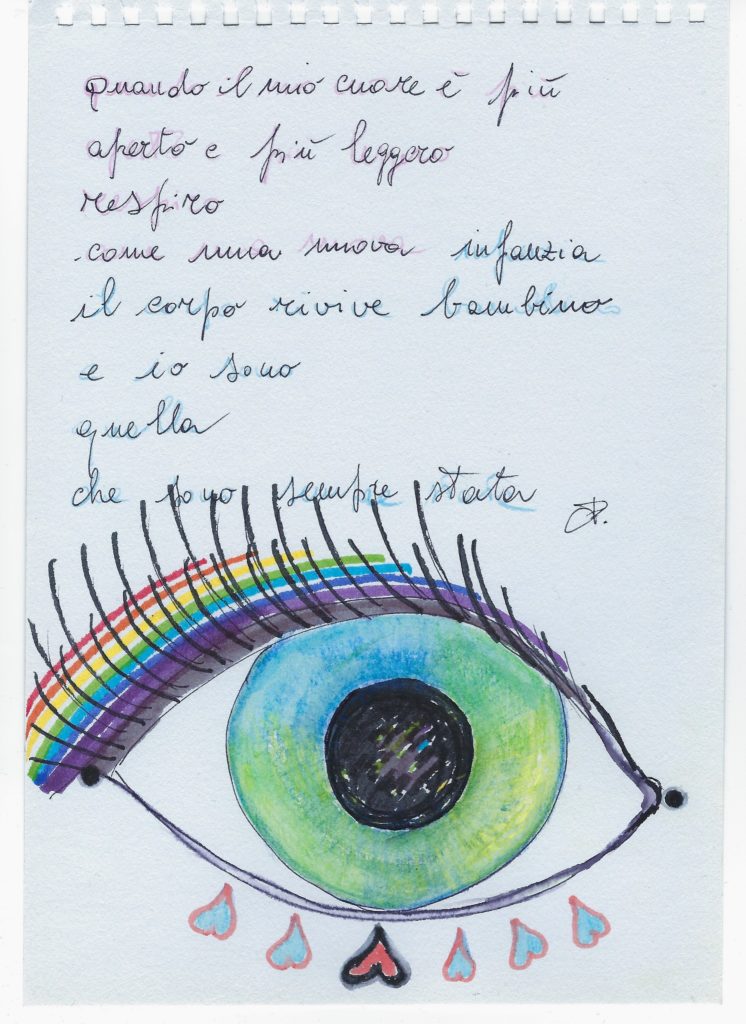 quando il mio cuore è più
aperto e più leggero
respiro
come una nuova infanzia
il corpo rivive bambino
e io sono
quella
che sono sempre stata